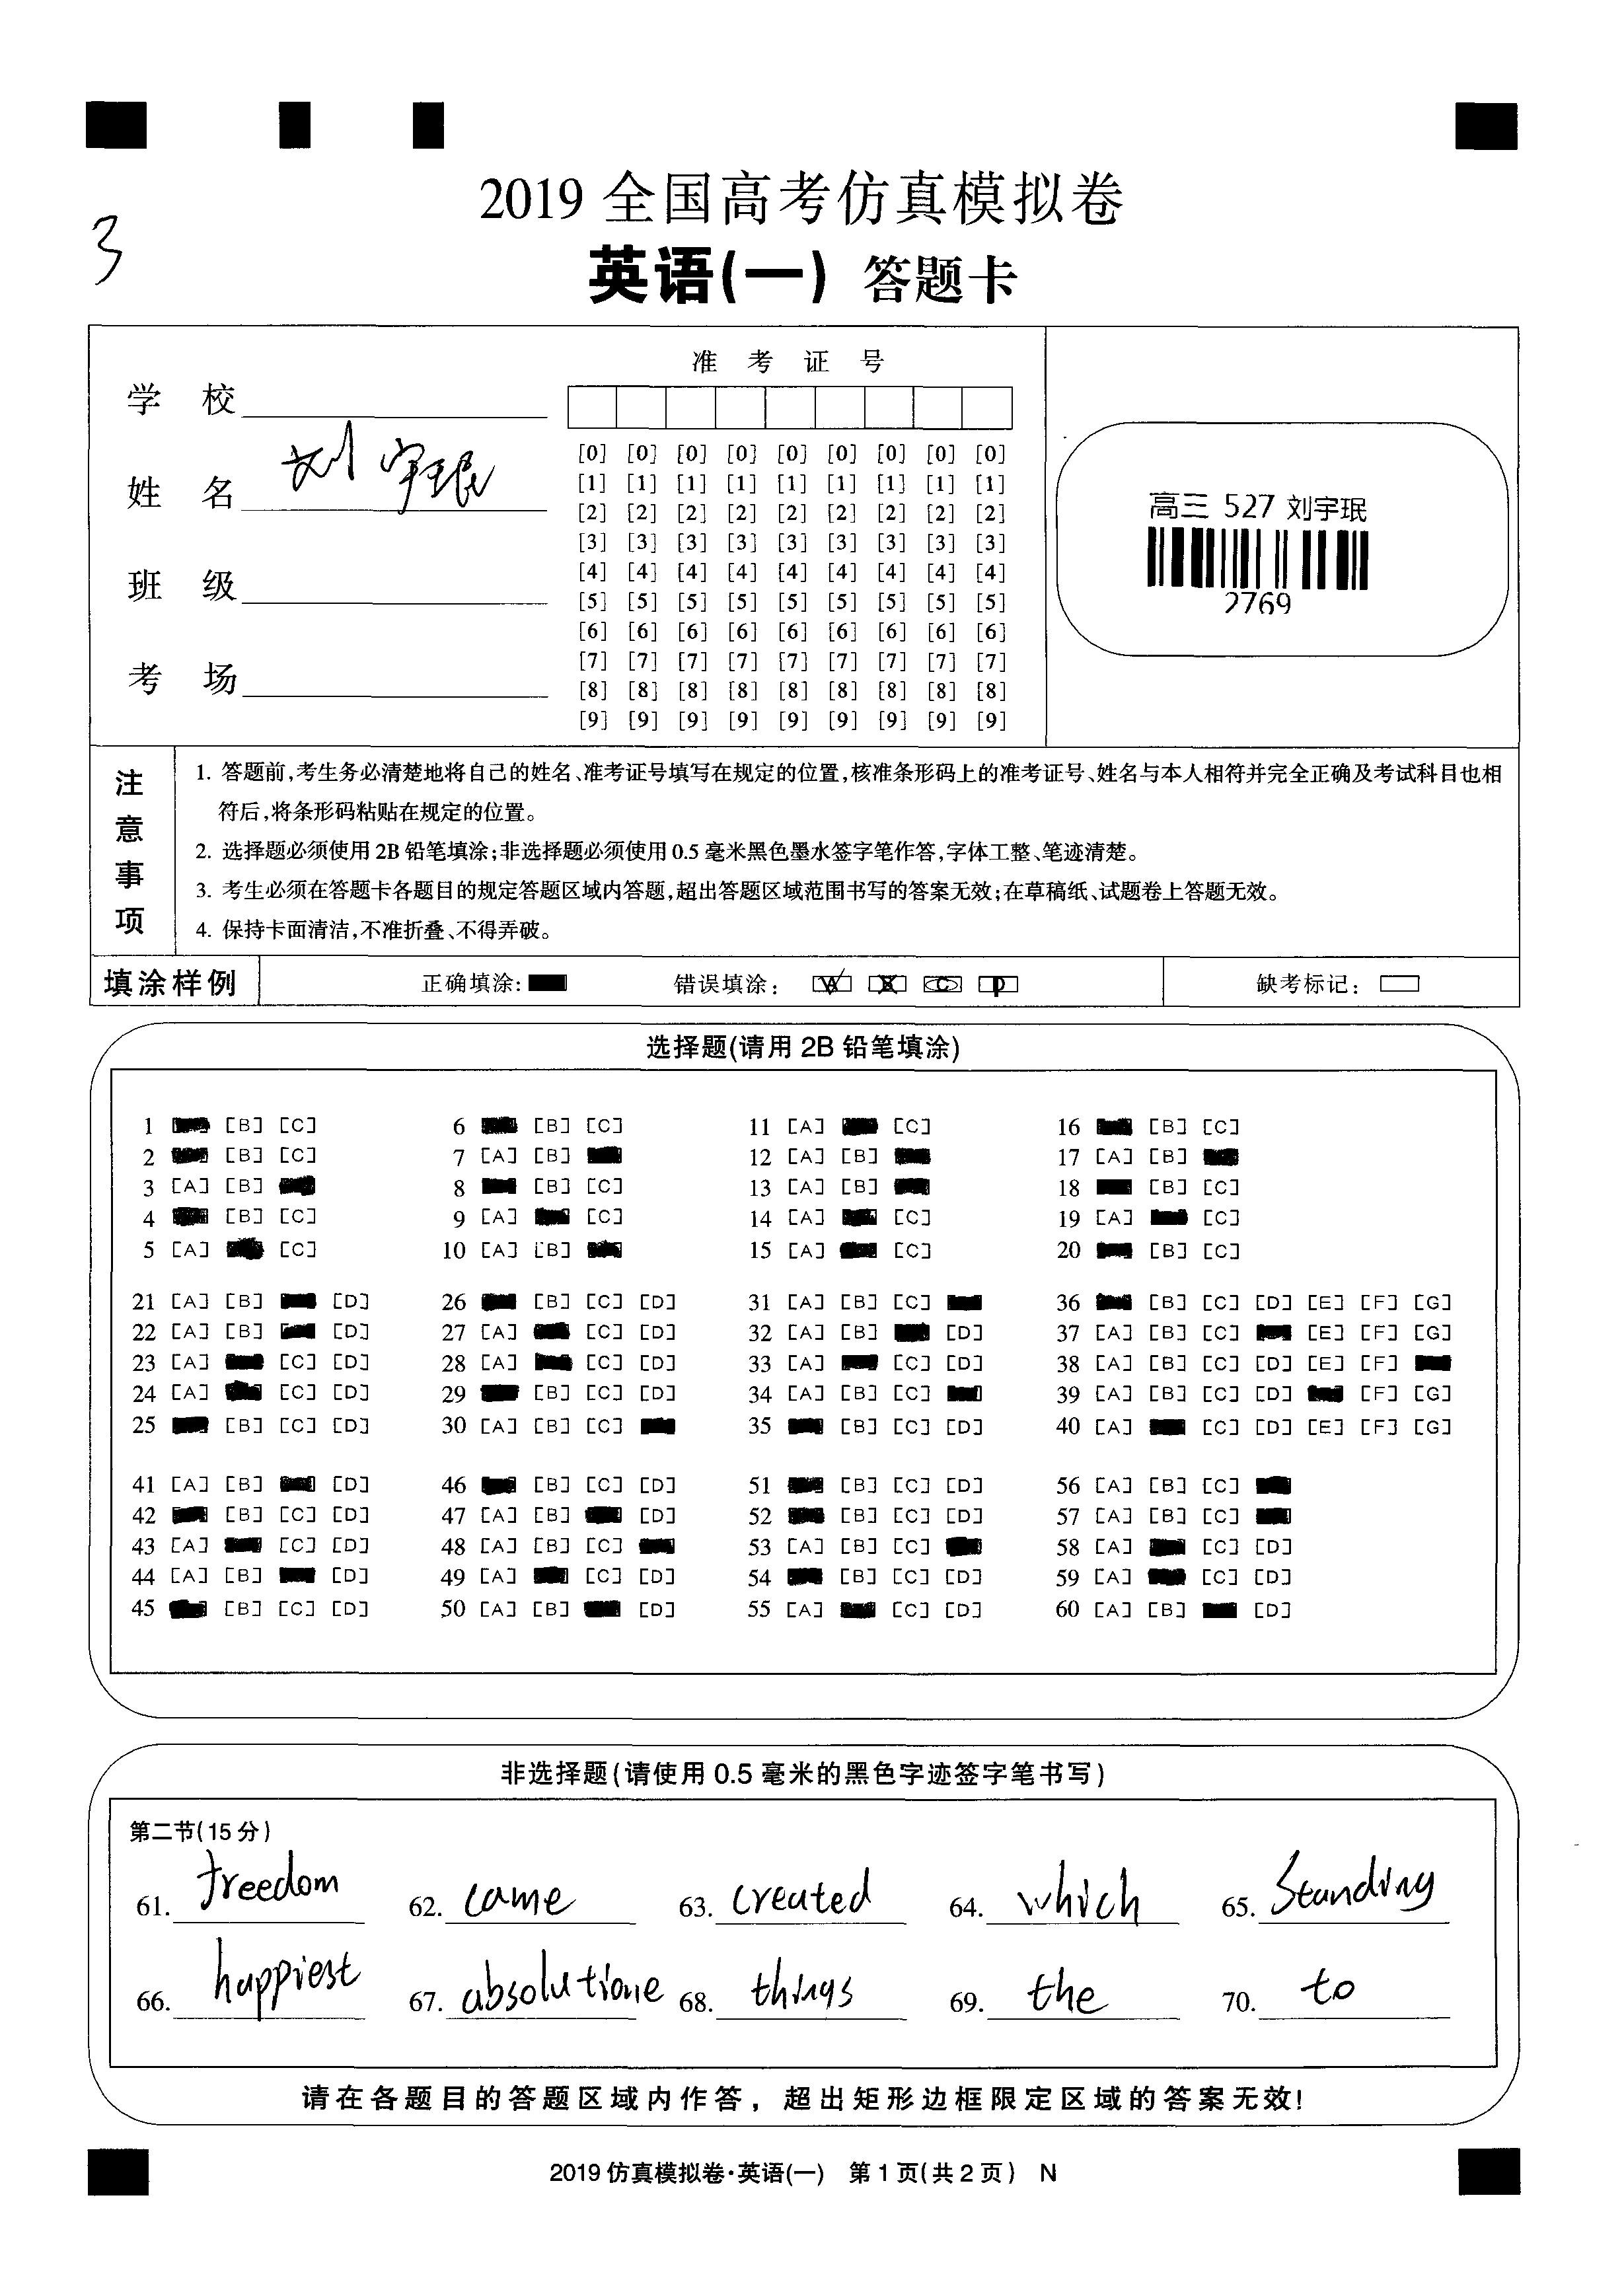 2019 全国高考仿真模拟卷
3
英语(一) 答题卡
准 考 证 号
学 校
姓 名 刘宇珉
班 级
考 场
[0] [0] [0] [0] [0] [0] [0] [0] [0]
[1] [1] [1] [1] [1] [1] [1] [1] [1]
[2] [2] [2] [2] [2] [2] [2] [2] [2]
[3] [3] [3] [3] [3] [3] [3] [3] [3]
[4] [4] [4] [4] [4] [4] [4] [4] [4]
[5] [5] [5] [5] [5] [5] [5] [5] [5]
[6] [6] [6] [6] [6] [6] [6] [6] [6]
[7] [7] [7] [7] [7] [7] [7] [7] [7]
[8] [8] [8] [8] [8] [8] [8] [8] [8]
[9] [9] [9] [9] [9] [9] [9] [9] [9]
高三 527 刘宇珉
2769
注意事项
1. 答题前,考生务必清楚地将自己的姓名、准考证号填写在规定的位置,核准条形码上的准考证号、姓名与本人相符并完全正确及考试科目也相
符后,将条形码粘贴在规定的位置。
2. 选择题必须使用 2B 铅笔填涂;非选择题必须使用 0.5 毫米黑色墨水签字笔作答,字体工整、笔迹清楚。
3. 考生必须在答题卡各题目的规定答题区域内答题,超出答题区域范围书写的答案无效;在草稿纸、试题卷上答题无效。
4. 保持卡面清洁,不准折叠、不得弄破。
填涂样例 正确填涂: 错误填涂: A B C D 缺考标记:
选择题(请用 2B 铅笔填涂)
1 [B] [C] 6 [B] [C] 11 [A] [C] 16 [B] [C]
2 [B] [C] 7 [A] [B] 12 [A] [B] 17 [A] [B]
3 [A] [B] 8 [B] [C] 13 [A] [B] 18 [B] [C]
4 [B] [C] 9 [A] [C] 14 [A] [C] 19 [A] [C]
5 [A] [C] 10 [A] [B] 15 [A] [C] 20 [B] [C]
21 [A] [B] [D] 26 [B] [C] [D] 31 [A] [B] [C] 36 [B] [C] [D] [E] [F] [G]
22 [A] [B] [D] 27 [A] [C] [D] 32 [A] [B] [D] 37 [A] [B] [C] [E] [F] [G]
23 [A] [C] [D] 28 [A] [C] [D] 33 [A] [C] [D] 38 [A] [B] [C] [D] [E] [F]
24 [A] [C] [D] 29 [B] [C] [D] 34 [A] [B] [C] 39 [A] [B] [C] [D] [F] [G]
25 [B] [C] [D] 30 [A] [B] [C] 35 [B] [C] [D] 40 [A] [C] [D] [E] [F] [G]
41 [A] [B] [D] 46 [B] [C] [D] 51 [B] [C] [D] 56 [A] [B] [C]
42 [B] [C] [D] 47 [A] [B] [D] 52 [B] [C] [D] 57 [A] [B] [C]
43 [A] [C] [D] 48 [A] [B] [C] 53 [A] [B] [C] 58 [A] [C] [D]
44 [A] [B] [D] 49 [A] [C] [D] 54 [B] [C] [D] 59 [A] [C] [D]
45 [B] [C] [D] 50 [A] [B] [D] 55 [A] [C] [D] 60 [A] [B] [D]
非选择题(请使用 0.5 毫米的黑色字迹签字笔书写)
第二节(15 分)
61. freedom 62. came 63. created 64. which 65. Standing
66. happiest 67. absolutione 68. things 69. the 70. to
请在各题目的答题区域内作答，超出矩形边框限定区域的答案无效!
2019 仿真模拟卷·英语(一) 第 1 页(共 2 页) N